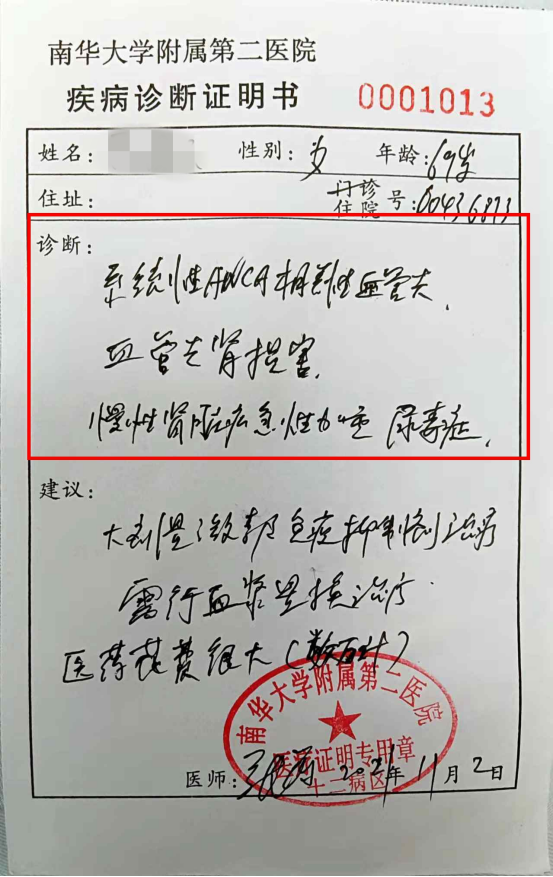 南华大学附属第二医院
疾病诊断证明书
0001013
姓名: 性别: 女 年龄: 69岁
住址: 门诊住院号: 00436873
诊断:
系统性ANCA相关性血管炎,
血管炎肾损害,
慢性肾脏病急性加重 尿毒症,
建议:
大剂量激素及免疫抑制剂治疗
需行血浆置换治疗.
医药花费很大(数万计)
南华大学附属第二医院
医疗证明专用章
十二病区
医师: 2021年11月2日